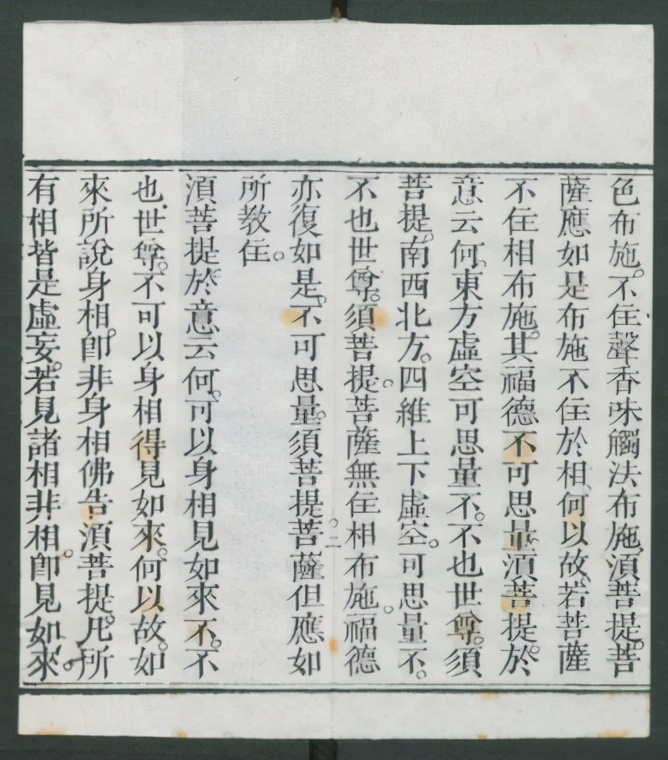 色布施。不住聲香味觸法布施。湏菩提。菩
薩應如是布施不住於相。何以故。若菩薩
不住相布施。其福德不可思量。湏菩提於
意云何。東方虛空可思量不。不也世尊。須
菩提。南西北方。四維上下虛空。可思量不。
不也世尊。須菩提。菩薩無住相布施。福德
亦復如是。不可思量。須菩提。菩薩但應如
所教住。
湏菩提於意云何。可以身相見如來不。不
也世尊。不可以身相得見如來。何以故。如
來所說身相。卽非身相佛告湏菩提。凡所
有相皆是虛妄。若見諸相非相。卽見如來。
二